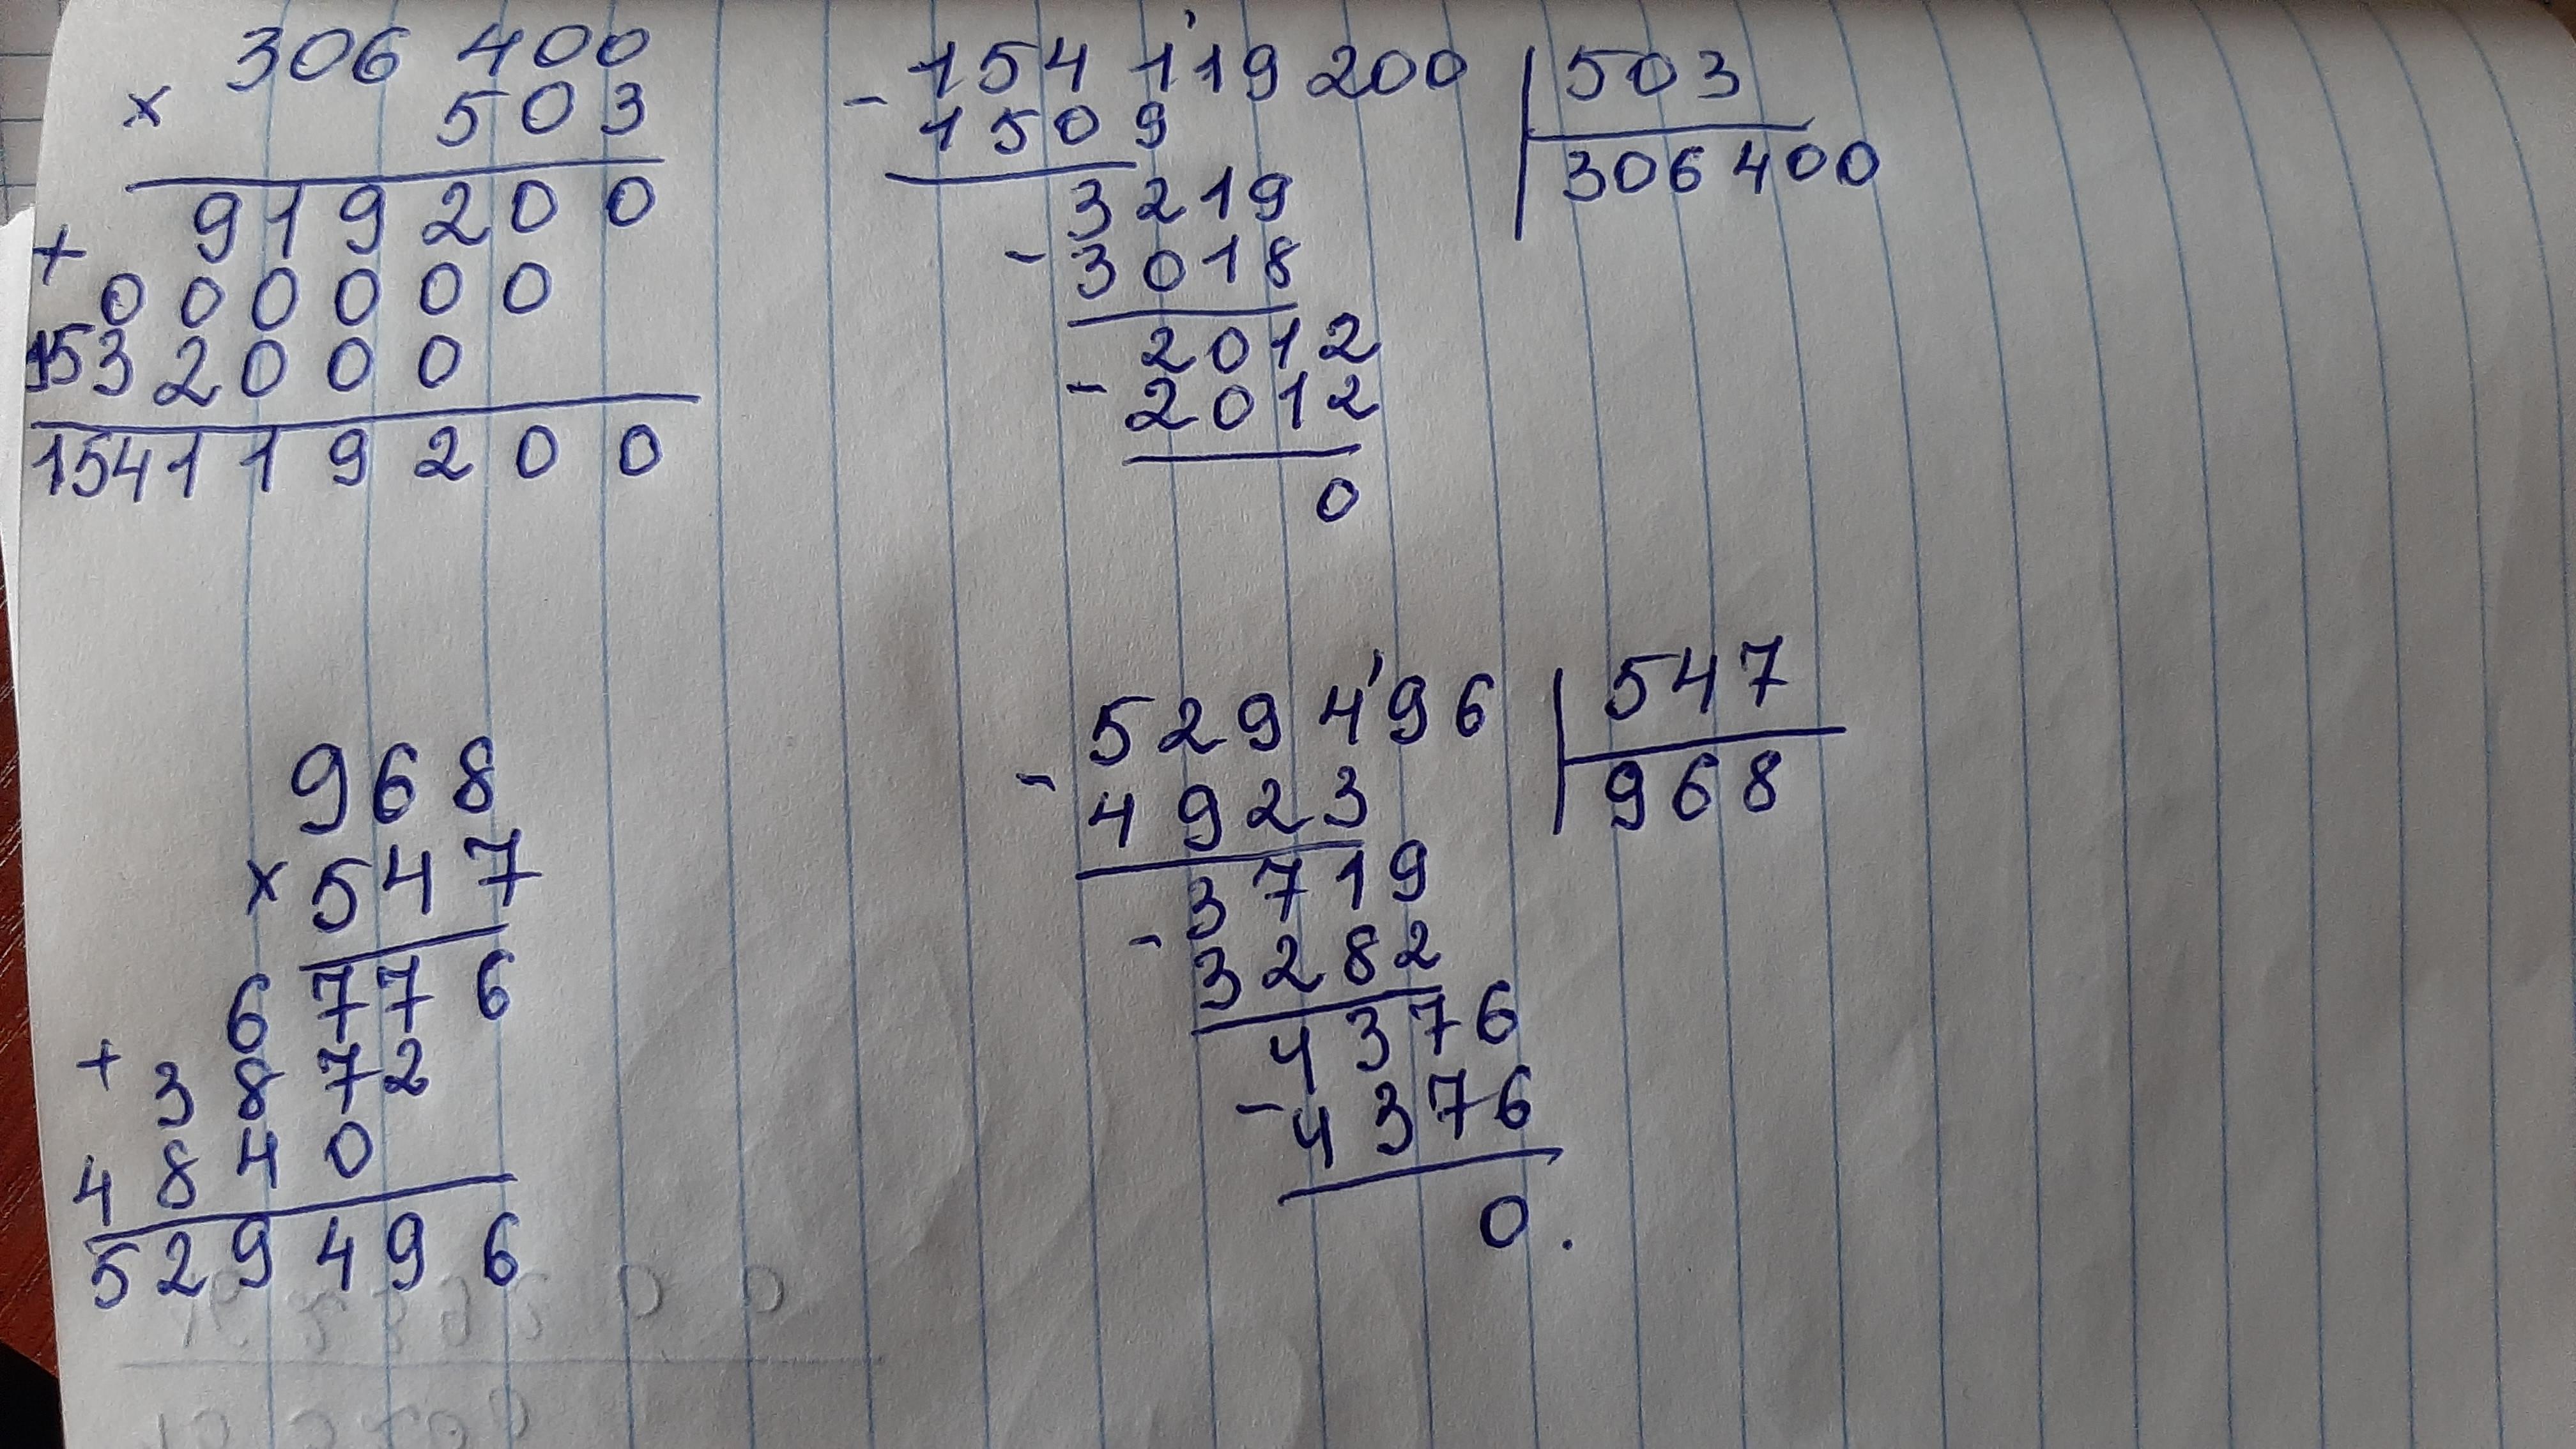 306 400
× 503
919200
+ 000000
1532000
154119200
- 154 119 200 | 503
1509 | 306 400
3219
- 3018
2012
- 2012
0
968
× 547
6776
+ 3872
4840
529496
- 529 496 | 547
4923 | 968
3719
- 3282
4376
- 4376
0.